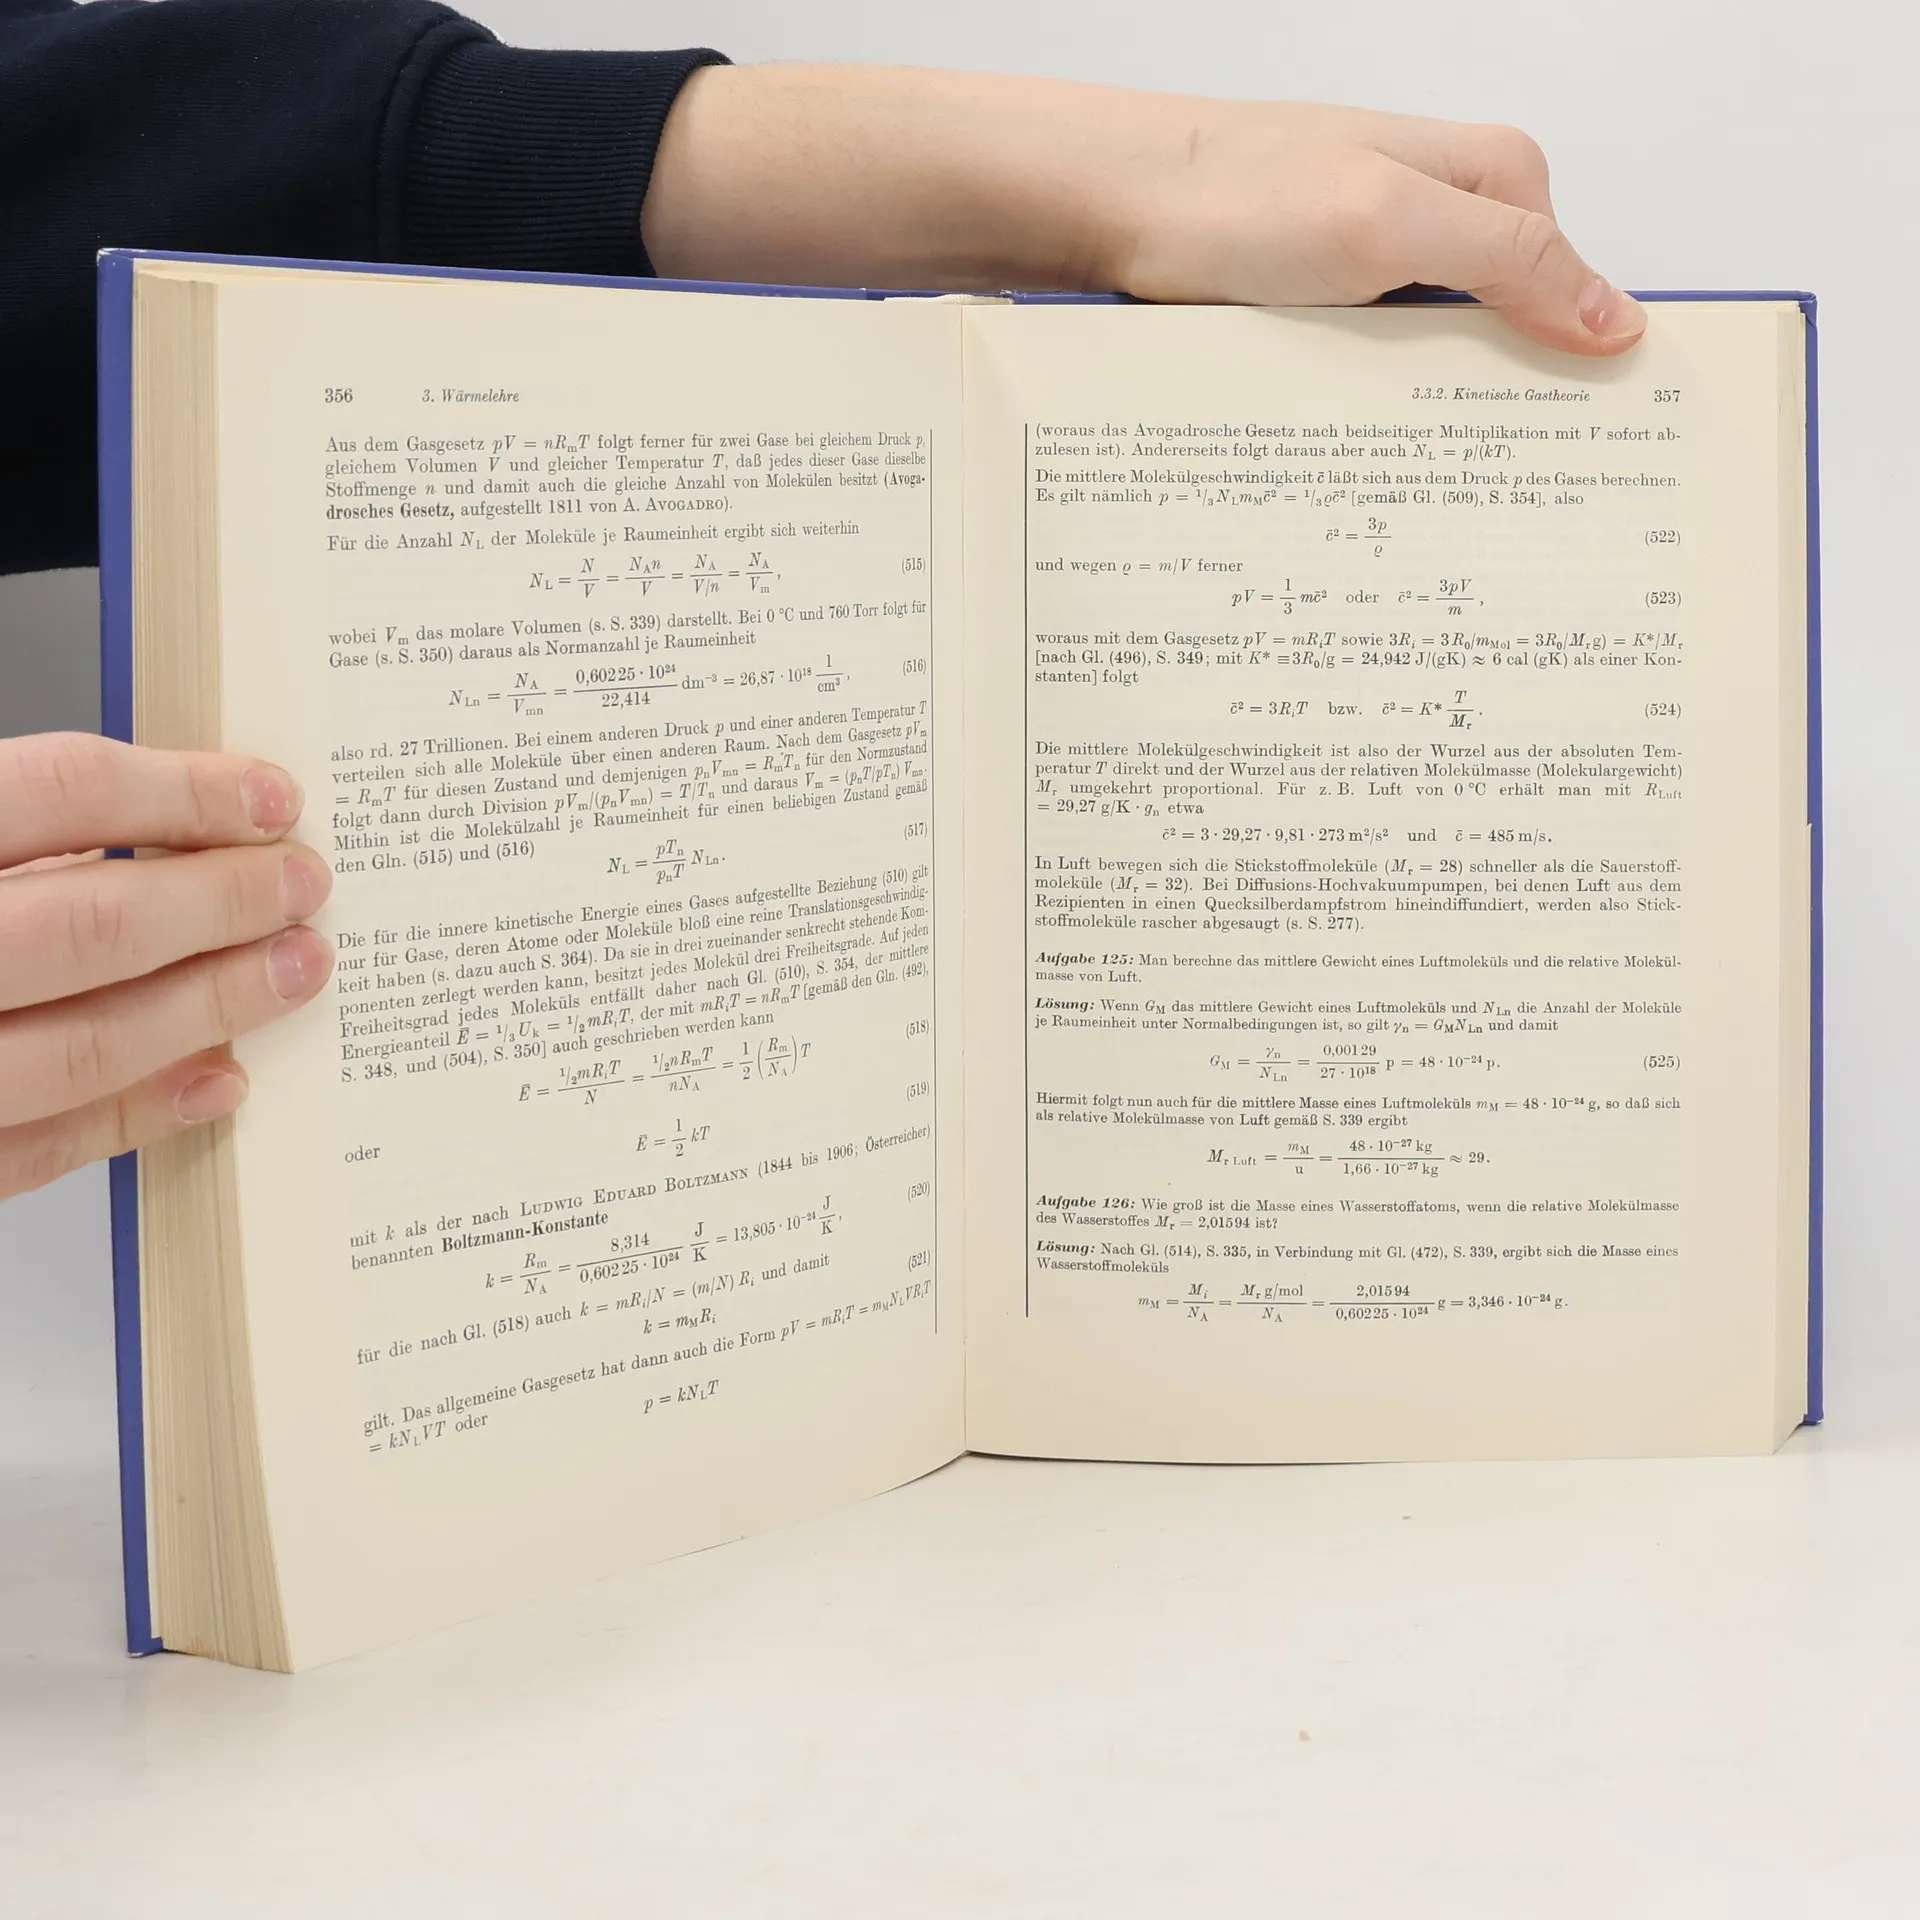 356 3. Wärmelehre
Aus dem Gasgesetz pV = nRₘT folgt ferner für zwei Gase bei gleichem Druck p,
gleichem Volumen V und gleicher Temperatur T, daß jedes dieser Gase dieselbe
Stoffmenge n und damit auch die gleiche Anzahl von Molekülen besitzt (Avoga-
drosches Gesetz, aufgestellt 1811 von A. AVOGADRO).
Für die Anzahl N_L der Moleküle je Raumeinheit ergibt sich weiterhin
N_L = N/V = N_A n/V = N_A/(V/n) = N_A/V_m, (515)
wobei V_m das molare Volumen (s. S. 339) darstellt. Bei 0 °C und 760 Torr folgt für
Gase (s. S. 350) daraus als Normanzahl je Raumeinheit
N_Ln = N_A/V_mn = 0,60225 · 10²⁴/22,414 dm⁻³ = 26,87 · 10¹⁸ 1/cm³, (516)
also rd. 27 Trillionen. Bei einem anderen Druck p und einer anderen Temperatur T
verteilen sich alle Moleküle über einen anderen Raum. Nach dem Gasgesetz pV_m
= R_mT für diesen Zustand und demjenigen p_nV_mn = R_mT_n für den Normzustand
folgt dann durch Division pV_m/(p_nV_mn) = T/T_n und daraus V_m = (p_nT/pT_n) V_mn.
Mithin ist die Molekülzahl je Raumeinheit für einen beliebigen Zustand gemäß
den Gln. (515) und (516)
N_L = pT_n/p_nT N_Ln. (517)
Die für die innere kinetische Energie eines Gases aufgestellte Beziehung (510) gilt
nur für Gase, deren Atome oder Moleküle bloß eine reine Translationsgeschwindig-
keit haben (s. dazu auch S. 364). Da sie in drei zueinander senkrecht stehende Kom-
ponenten zerlegt werden kann, besitzt jedes Molekül drei Freiheitsgrade. Auf jeden
Freiheitsgrad jedes Moleküls entfällt daher nach Gl. (510), S. 354, der mittlere
Energieanteil Ē = ¹/₃ U_k = ¹/₂ mR_iT, der mit mR_iT = nR_mT [gemäß den Gln. (492),
S. 348, und (504), S. 350] auch geschrieben werden kann
Ē = ¹/₂mR_iT/N = ¹/₂nR_mT/nN_A = 1/2 (R_m/N_A) T (518)
oder Ē = 1/2 kT (519)
mit k als der nach LUDWIG EDUARD BOLTZMANN (1844 bis 1906; Österreicher)
benannten Boltzmann-Konstante
k = R_m/N_A = 8,314/0,60225 · 10²⁴ J/K = 13,805 · 10⁻²⁴ J/K, (520)
für die nach Gl. (518) auch k = mR_i/N = (m/N) R_i und damit
k = m_MR_i (521)
gilt. Das allgemeine Gasgesetz hat dann auch die Form pV = mR_iT = m_MN_LVR_iT
= kN_LVT oder
p = kN_LT
3.3.2. Kinetische Gastheorie 357
(woraus das Avogadrosche Gesetz nach beidseitiger Multiplikation mit V sofort ab-
zulesen ist). Andererseits folgt daraus aber auch N_L = p/(kT).
Die mittlere Molekülgeschwindigkeit c̄ läßt sich aus dem Druck p des Gases berechnen.
Es gilt nämlich p = ¹/₃ N_Lm_Mc̄² = ¹/₃ϱc̄² [gemäß Gl. (509), S. 354], also
c̄² = 3p/ϱ (522)
und wegen ϱ = m/V ferner
pV = 1/3 mc̄² oder c̄² = 3pV/m, (523)
woraus mit dem Gasgesetz pV = mR_iT sowie 3R_i = 3R₀/m_Mol = 3R₀/M_rg) = K*/M_r
[nach Gl. (496), S. 349; mit K* ≡ 3R₀/g = 24,942 J/(gK) ≈ 6 cal (gK) als einer Kon-
stanten] folgt
c̄² = 3R_iT bzw. c̄² = K* T/M_r. (524)
Die mittlere Molekülgeschwindigkeit ist also der Wurzel aus der absoluten Tem-
peratur T direkt und der Wurzel aus der relativen Molekülmasse (Molekulargewicht)
M_r umgekehrt proportional. Für z. B. Luft von 0 °C erhält man mit R_Luft
= 29,27 g/K · g_n etwa
c̄² = 3 · 29,27 · 9,81 · 273 m²/s² und c̄ = 485 m/s.
In Luft bewegen sich die Stickstoffmoleküle (M_r = 28) schneller als die Sauerstoff-
moleküle (M_r = 32). Bei Diffusions-Hochvakuumpumpen, bei denen Luft aus dem
Rezipienten in einen Quecksilberdampfstrom hineindiffundiert, werden also Stick-
stoffmoleküle rascher abgesaugt (s. S. 277).
Aufgabe 125: Man berechne das mittlere Gewicht eines Luftmoleküls und die relative Molekül-
masse von Luft.
Lösung: Wenn G_M das mittlere Gewicht eines Luftmoleküls und N_Ln die Anzahl der Moleküle
je Raumeinheit unter Normalbedingungen ist, so gilt γ_n = G_MN_Ln und damit
G_M = γ_n/N_Ln = 0,00129/27 · 10¹⁸ p = 48 · 10⁻²⁴ p. (525)
Hiermit folgt nun auch für die mittlere Masse eines Luftmoleküls m_M = 48 · 10⁻²⁴ g, so daß sich
als relative Molekülmasse von Luft gemäß S. 339 ergibt
M_r Luft = m_M/u = 48 · 10⁻²⁷ kg/1,66 · 10⁻²⁷ kg ≈ 29.
Aufgabe 126: Wie groß ist die Masse eines Wasserstoffatoms, wenn die relative Molekülmasse
des Wasserstoffes M_r = 2,01594 ist?
Lösung: Nach Gl. (514), S. 335, in Verbindung mit Gl. (472), S. 339, ergibt sich die Masse eines
Wasserstoffmoleküls
m_M = M_i/N_A = M_r g/mol/N_A = 2,01594/0,60225 · 10²⁴ g = 3,346 · 10⁻²⁴ g.